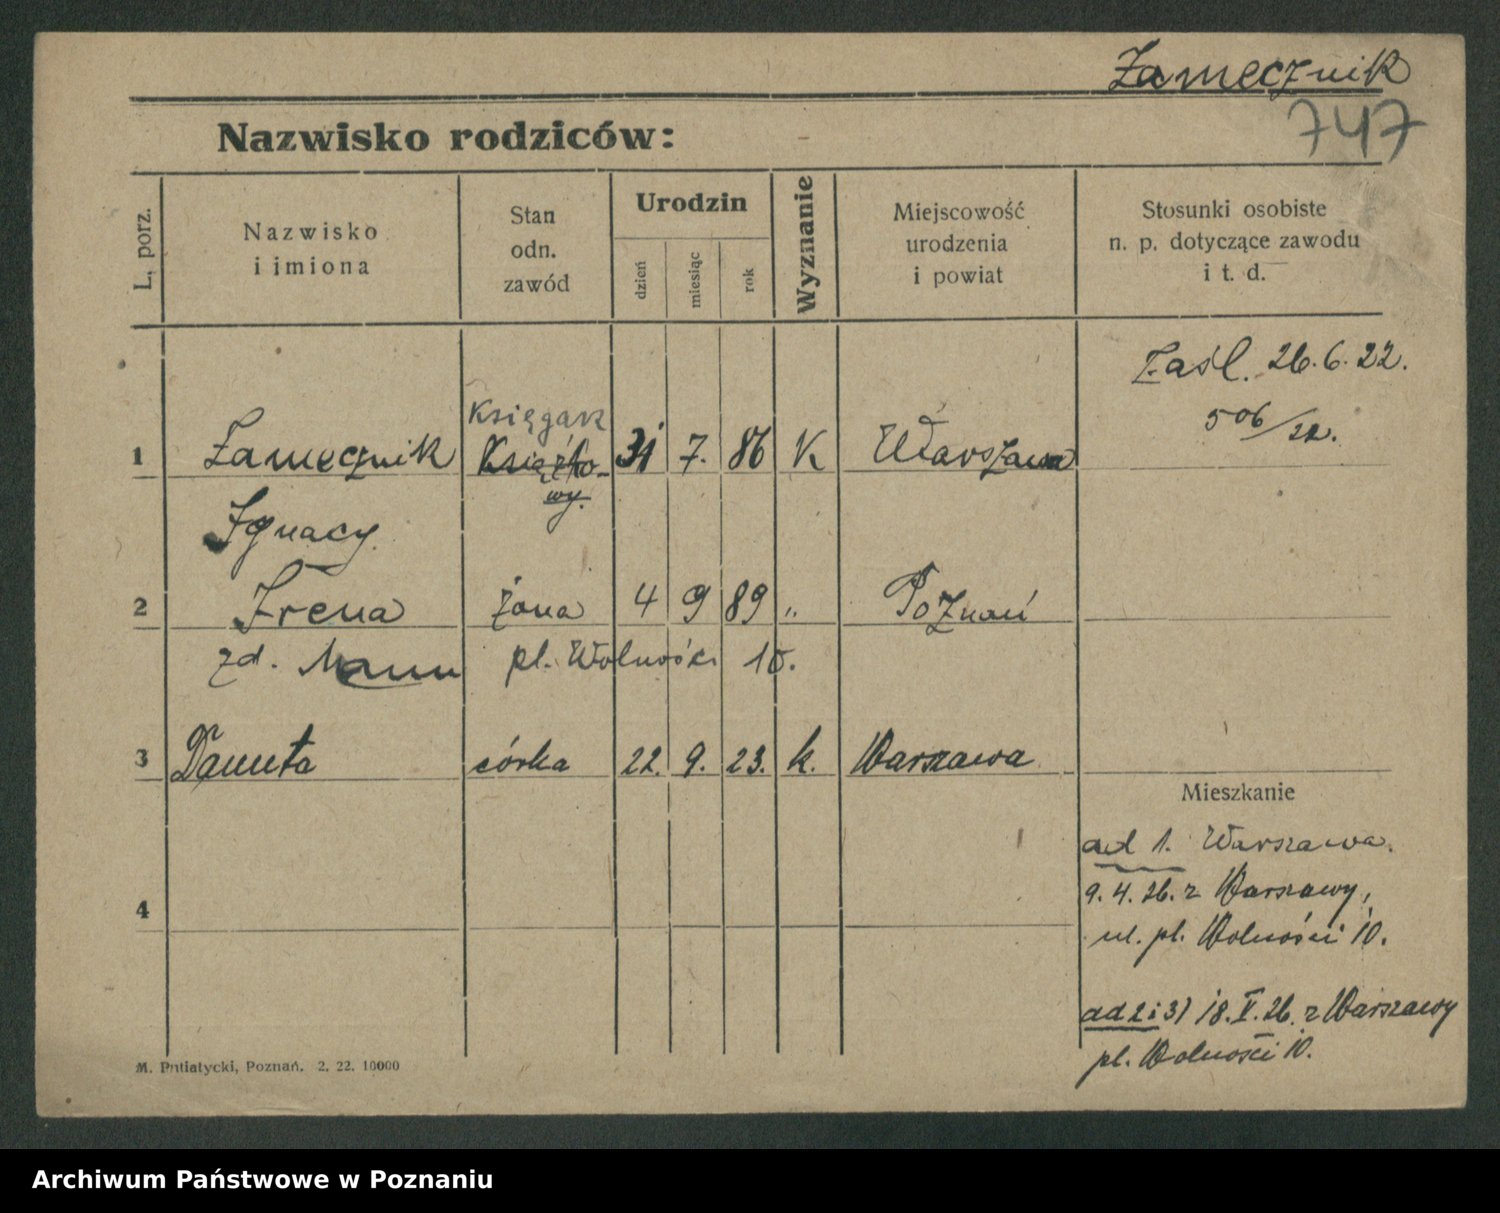 Zamecznik
747
Nazwisko rodziców:
L. porz.
Nazwisko
i imiona
Stan
odn.
zawód
Urodzin
dzień
miesiąc
rok
Wyznanie
Miejscowość
urodzenia
i powiat
Stosunki osobiste
n. p. dotyczące zawodu
i t. d.
Zaśl. 26.6.22.
506/22.
Księgarz
1 Zamecznik 31 7. 86 K Warszawa
wy.
Ignacy
2 Irena żona 4 9 89 " Poznań
zd. Mann pl. Wolności 10.
3 Danuta córka 22. 9. 23. k. Warszawa
Mieszkanie
ad 1. Warszawa.
9. 4. 26. z Warszawy,
ul. pl. Wolności 10.
4
ad 2 i 3) 18. V. 26. z Warszawy
pl. Wolności 10.
M. Putiatycki, Poznań. 2. 22. 10000
Archiwum Państwowe w Poznaniu